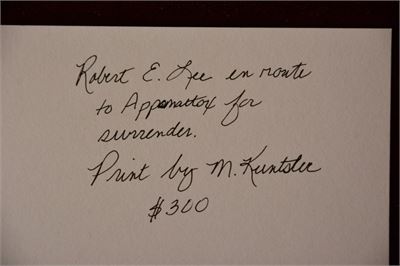 Robert E. Lee en route
to Appomattox for
surrender.
Print by M. Kuntslee
$300